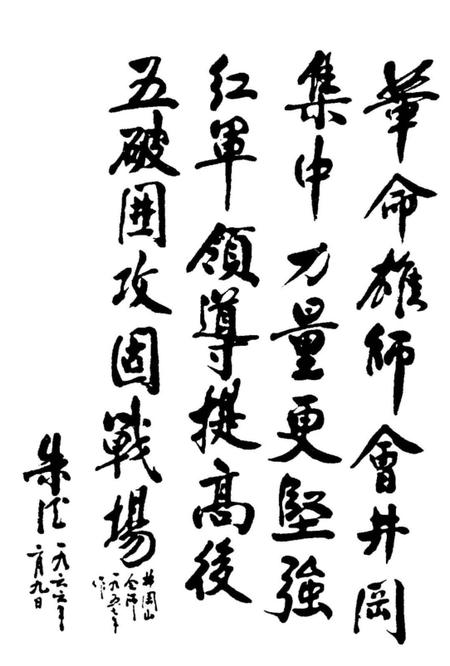 革命雄師會井岡
集中力量更堅強
红軍領導提高後
五破囲攻固戰場
井岡山
会师
一九五七年
作
朱德
一九六六年
二月九日